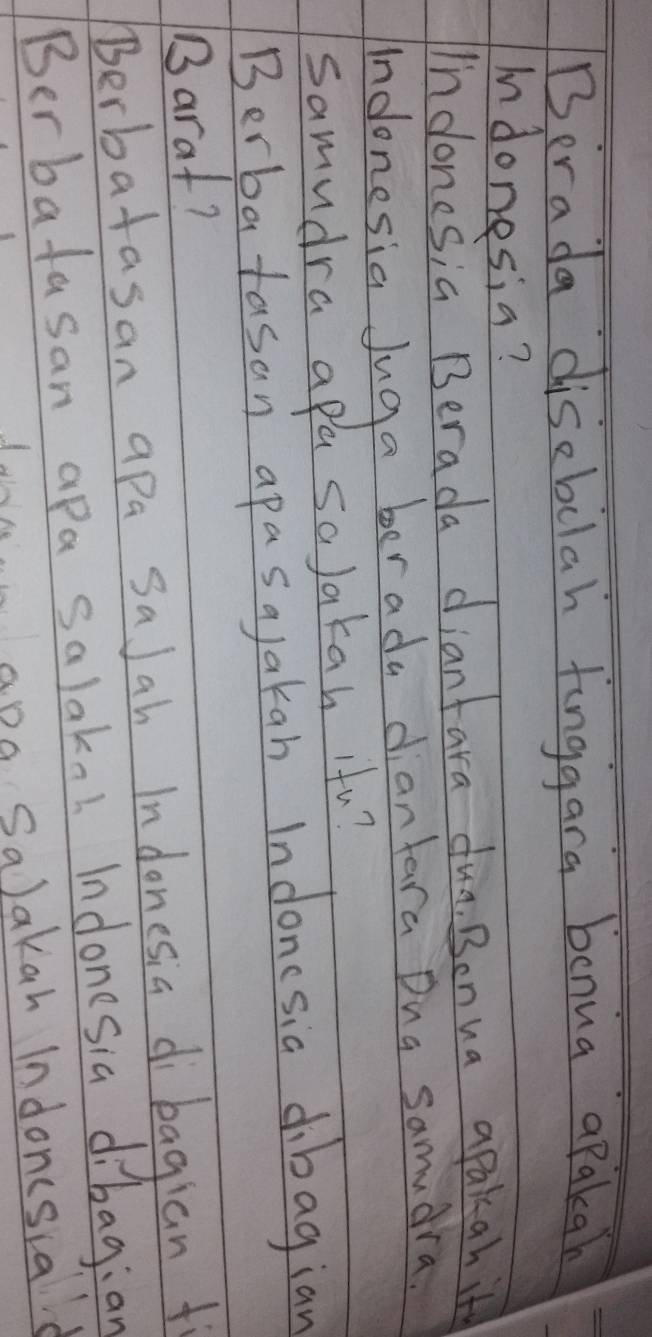 Berada disebelah tinggara benua apakah
Indonesia?
Indonesia Berada diantara dua. Benua apakah itu
Indonesia Juga berada diantara Dua samudra.
samudra apa sajakah itu?
Berbatasan apa sajakah Indonesia dibagian
Barat?
Berbatasan apa sajah Indonesia di bagian ti
Berbatasan apa sajakah Indonesia dibagian
apa sajakah Indonesia d